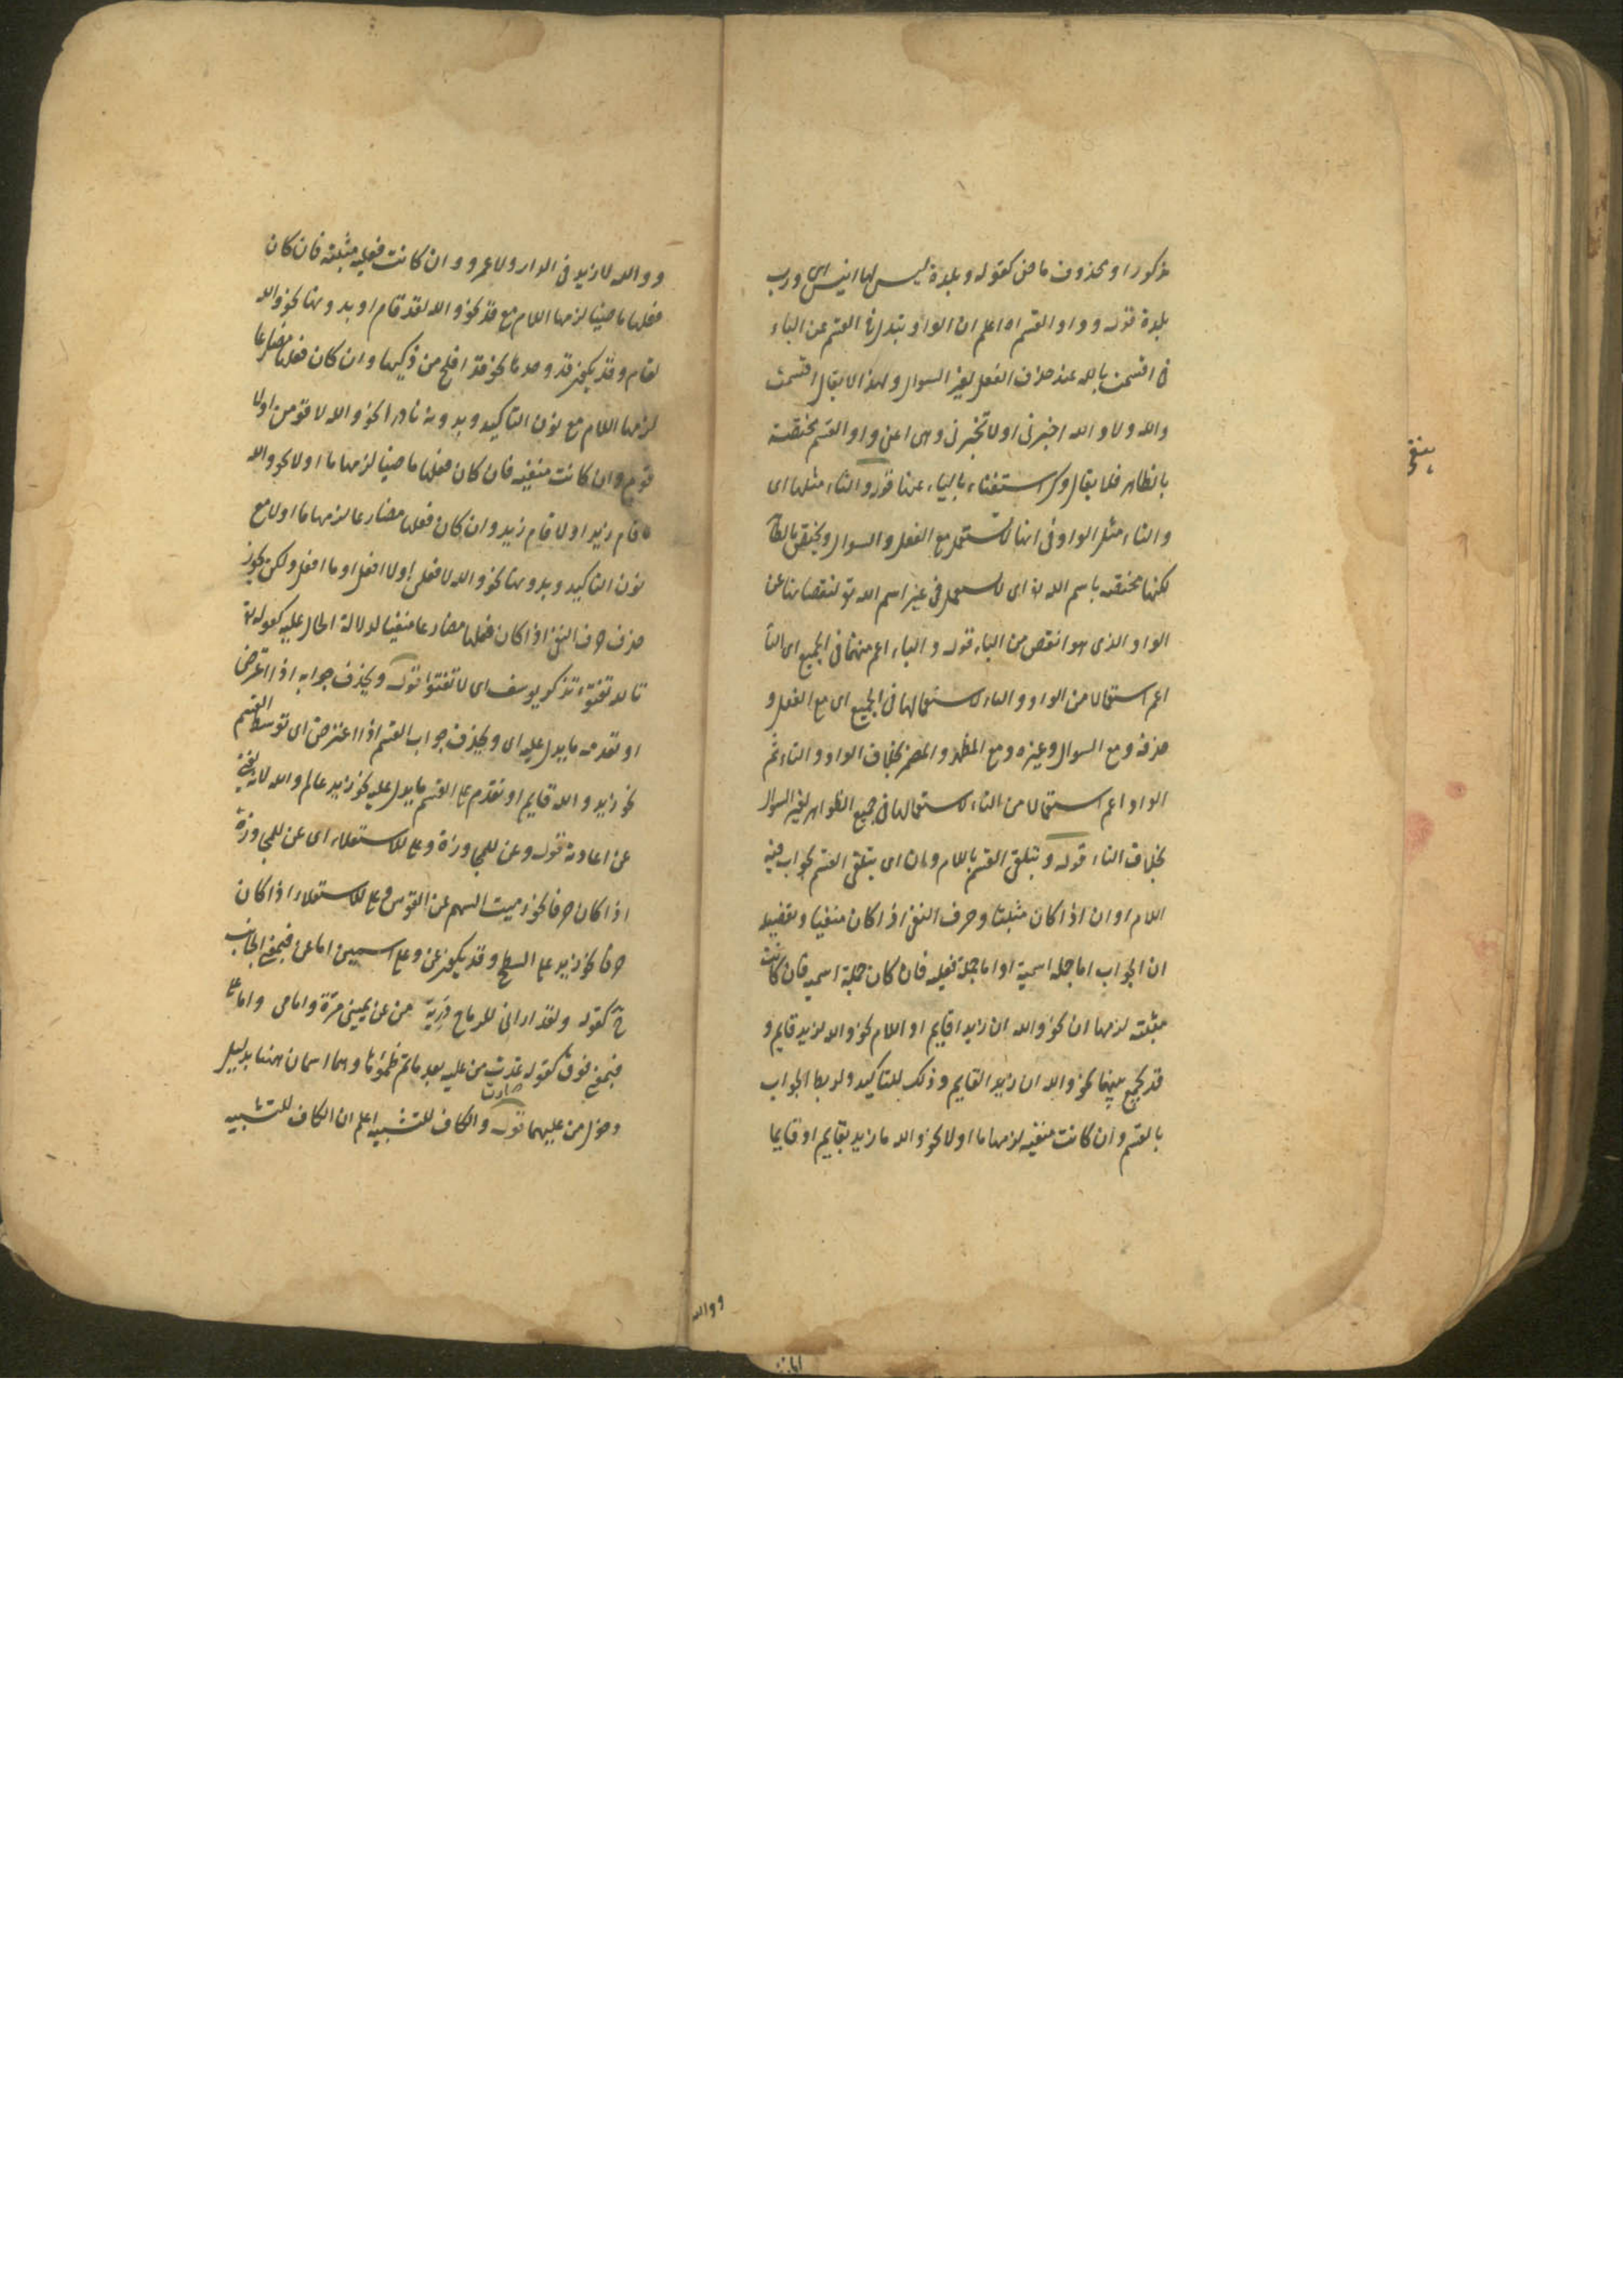 مذكور او محذوف ماض كقوله وبلدة ليس لها انيس اى ورب
بلدة قوله وواو القسم اه اعلم ان الواو تبدل فى القسم عن الباء
فى اقسمت بالله عند حذف الفعل لغير السوال ولهذا لا يقال اقسمت
والله ولا والله اخبرنى او لا تخبرنى وهى اعنى واو القسم مختصة
بالظاهر فلا يقال وك استغناء بالباء عنها قوله والتاء مثلها اى
والتاء مثل الواو فى انها لا تستعمل مع الفعل والسوال ويختص بالظا
لكنها مختصة باسم الله تع اى لا يستعمل فى غير اسم الله تع لنقصانها عن
الواو الذى هو انقص من الباء قوله والباء اعم منهما فى الجميع اى الباء
اعم استعمالا من الواو والتاء لاستعمالها فى الجميع اى مع الفعل و
حذفه ومع السوال وغيره ومع المظهر والمضمر بخلاف الواو والتاء ثم
الواو اعم استعمالا من التاء لاستعمالها فى جميع الظواهر لغير السوال
بخلاف التاء قوله ويتلقى القسم باللام وبان اى يتلقى القسم بجواب فيه
اللام او ان اذا كان مثبتا وحرف النفى اذا كان منفيا وتفصيله
ان الجواب اما جملة اسمية او اما جملة فعلية فان كان جملة اسمية فان كانت
مثبتة لزمها ان نحو والله ان زيدا قايم او اللام نحو والله لزيد قايم و
قد يجمع بينهما نحو والله ان زيدا لقايم وذلك للتاكيد ولربط الجواب
بالقسم وان كانت منفية لزمها ما او لا نحو والله ما زيد بقايم او قايما
ووالله
ووالله لا زيد فى الدار ولا عمرو وان كانت فعلية مثبتة فان كان
فعلها ماضيا لزمها اللام مع قد نحو والله لقد قام او بدونها نحو والله
لقام وقد يكون قد وحدها نحو قد افلح من زكيها وان كان فعلها مضارعا
لزمها اللام مع نون التاكيد وبدونه نادرا نحو والله لاقومن او لا
قوم وان كانت منفية فان كان فعلها ماضيا لزمها ما او لا نحو والله
ما قام زيد او لا قام زيد وان كان فعلها مضارعا لزمها ما او لا مع
نون التاكيد وبدونها نحو والله لا فعلن او لا افعل او ما افعل ولكن يجوز
حذف حرف النفى اذا كان فعلها مضارعا منفيا لدلالة الحال عليه كقوله تع
تالله تفتؤ تذكر يوسف اى لا تفتؤا قوله ويحذف جوابه اذا اعترض
او تقدمه ما يدل عليه اى ويحذف جواب القسم اذا اعترض اى توسط القسم
نحو زيد والله قايم او تقدم على القسم ما يدل عليه نحو زيد عالم والله
عن اعادته قوله وعن للمجاوزة وعلى للاستعلاء اى عن للمجاوزة
اذا كان حرفا نحو رميت السهم عن القوس وعلى للاستعلاء اذا كان
حرفا نحو زيد على السطح وقد يكون عن وعلى اسمين اما عن فبمعنى الجانب
كقوله ولقد ارانى للرماح دريئة من عن يمينى مرة وامامى واما على
فبمعنى فوق كقوله غدت من عليه بعد ما تم ظمؤها وهما اسمان ههنا بدليل
صارت
دخول من عليهما قوله والكاف للتشبيه اعلم ان الكاف للتشبيه